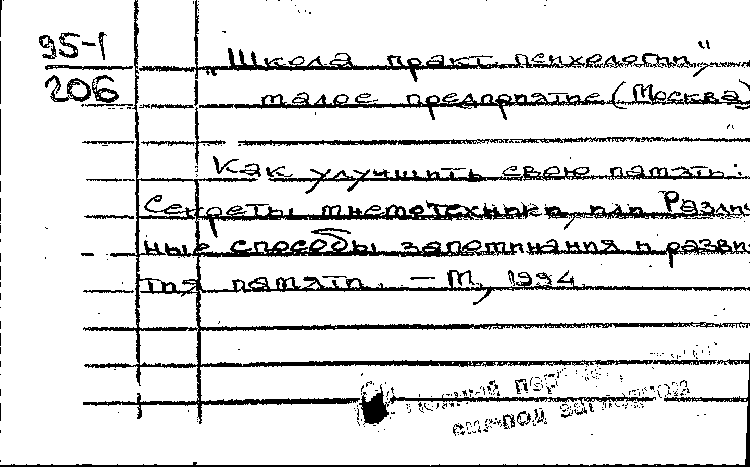 95-1
206
"Школа практ. психологии",
малое предприятие (Москва)
Как улучшить свою память:
Секреты мнемотехники, или Различ
ные способы запоминания и разви
тия памяти. — М., 1994.
Полный
за